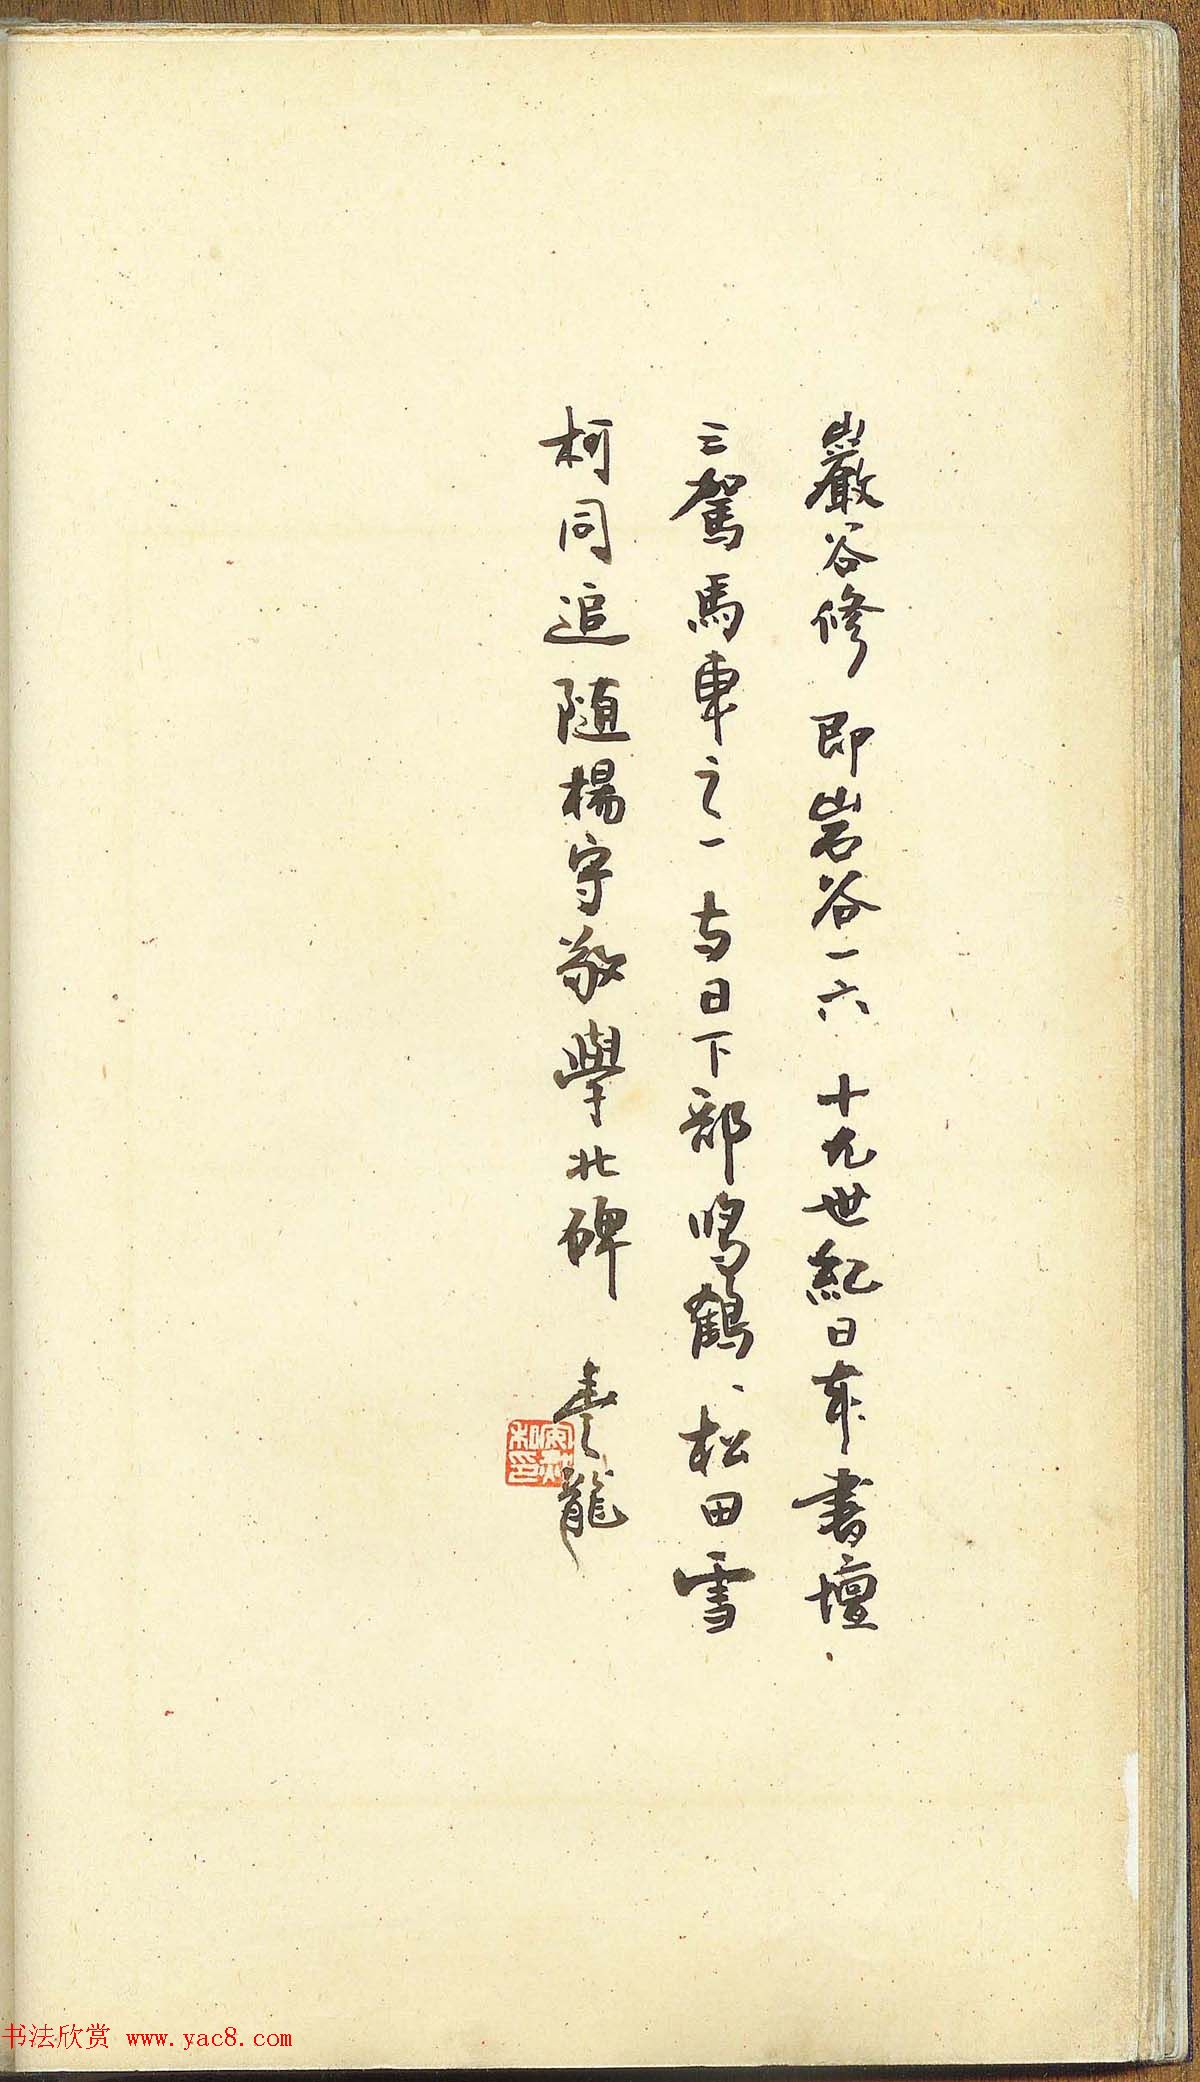 巖谷修 即岩谷一六 十九世紀日本書壇、
三駕馬車之一 与日下部鳴鶴、松田雪
柯同追随楊守敬學北碑 春龍
书法欣赏 www.yac8.com